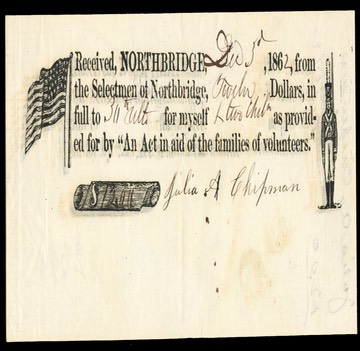 Received, NORTHBRIDGE, Dec 3d, 1862, from
the Selectmen of Northbridge, Twelve Dollars, in
full to 30th ult for myself & two Chiln as provid-
ed for by "An Act in aid of the families of volunteers."
STATE
Julia A Chipman